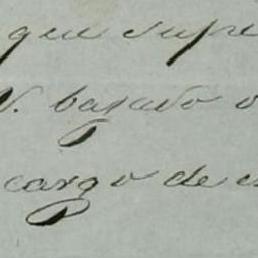 que supe
V. bajado o
cargo de e